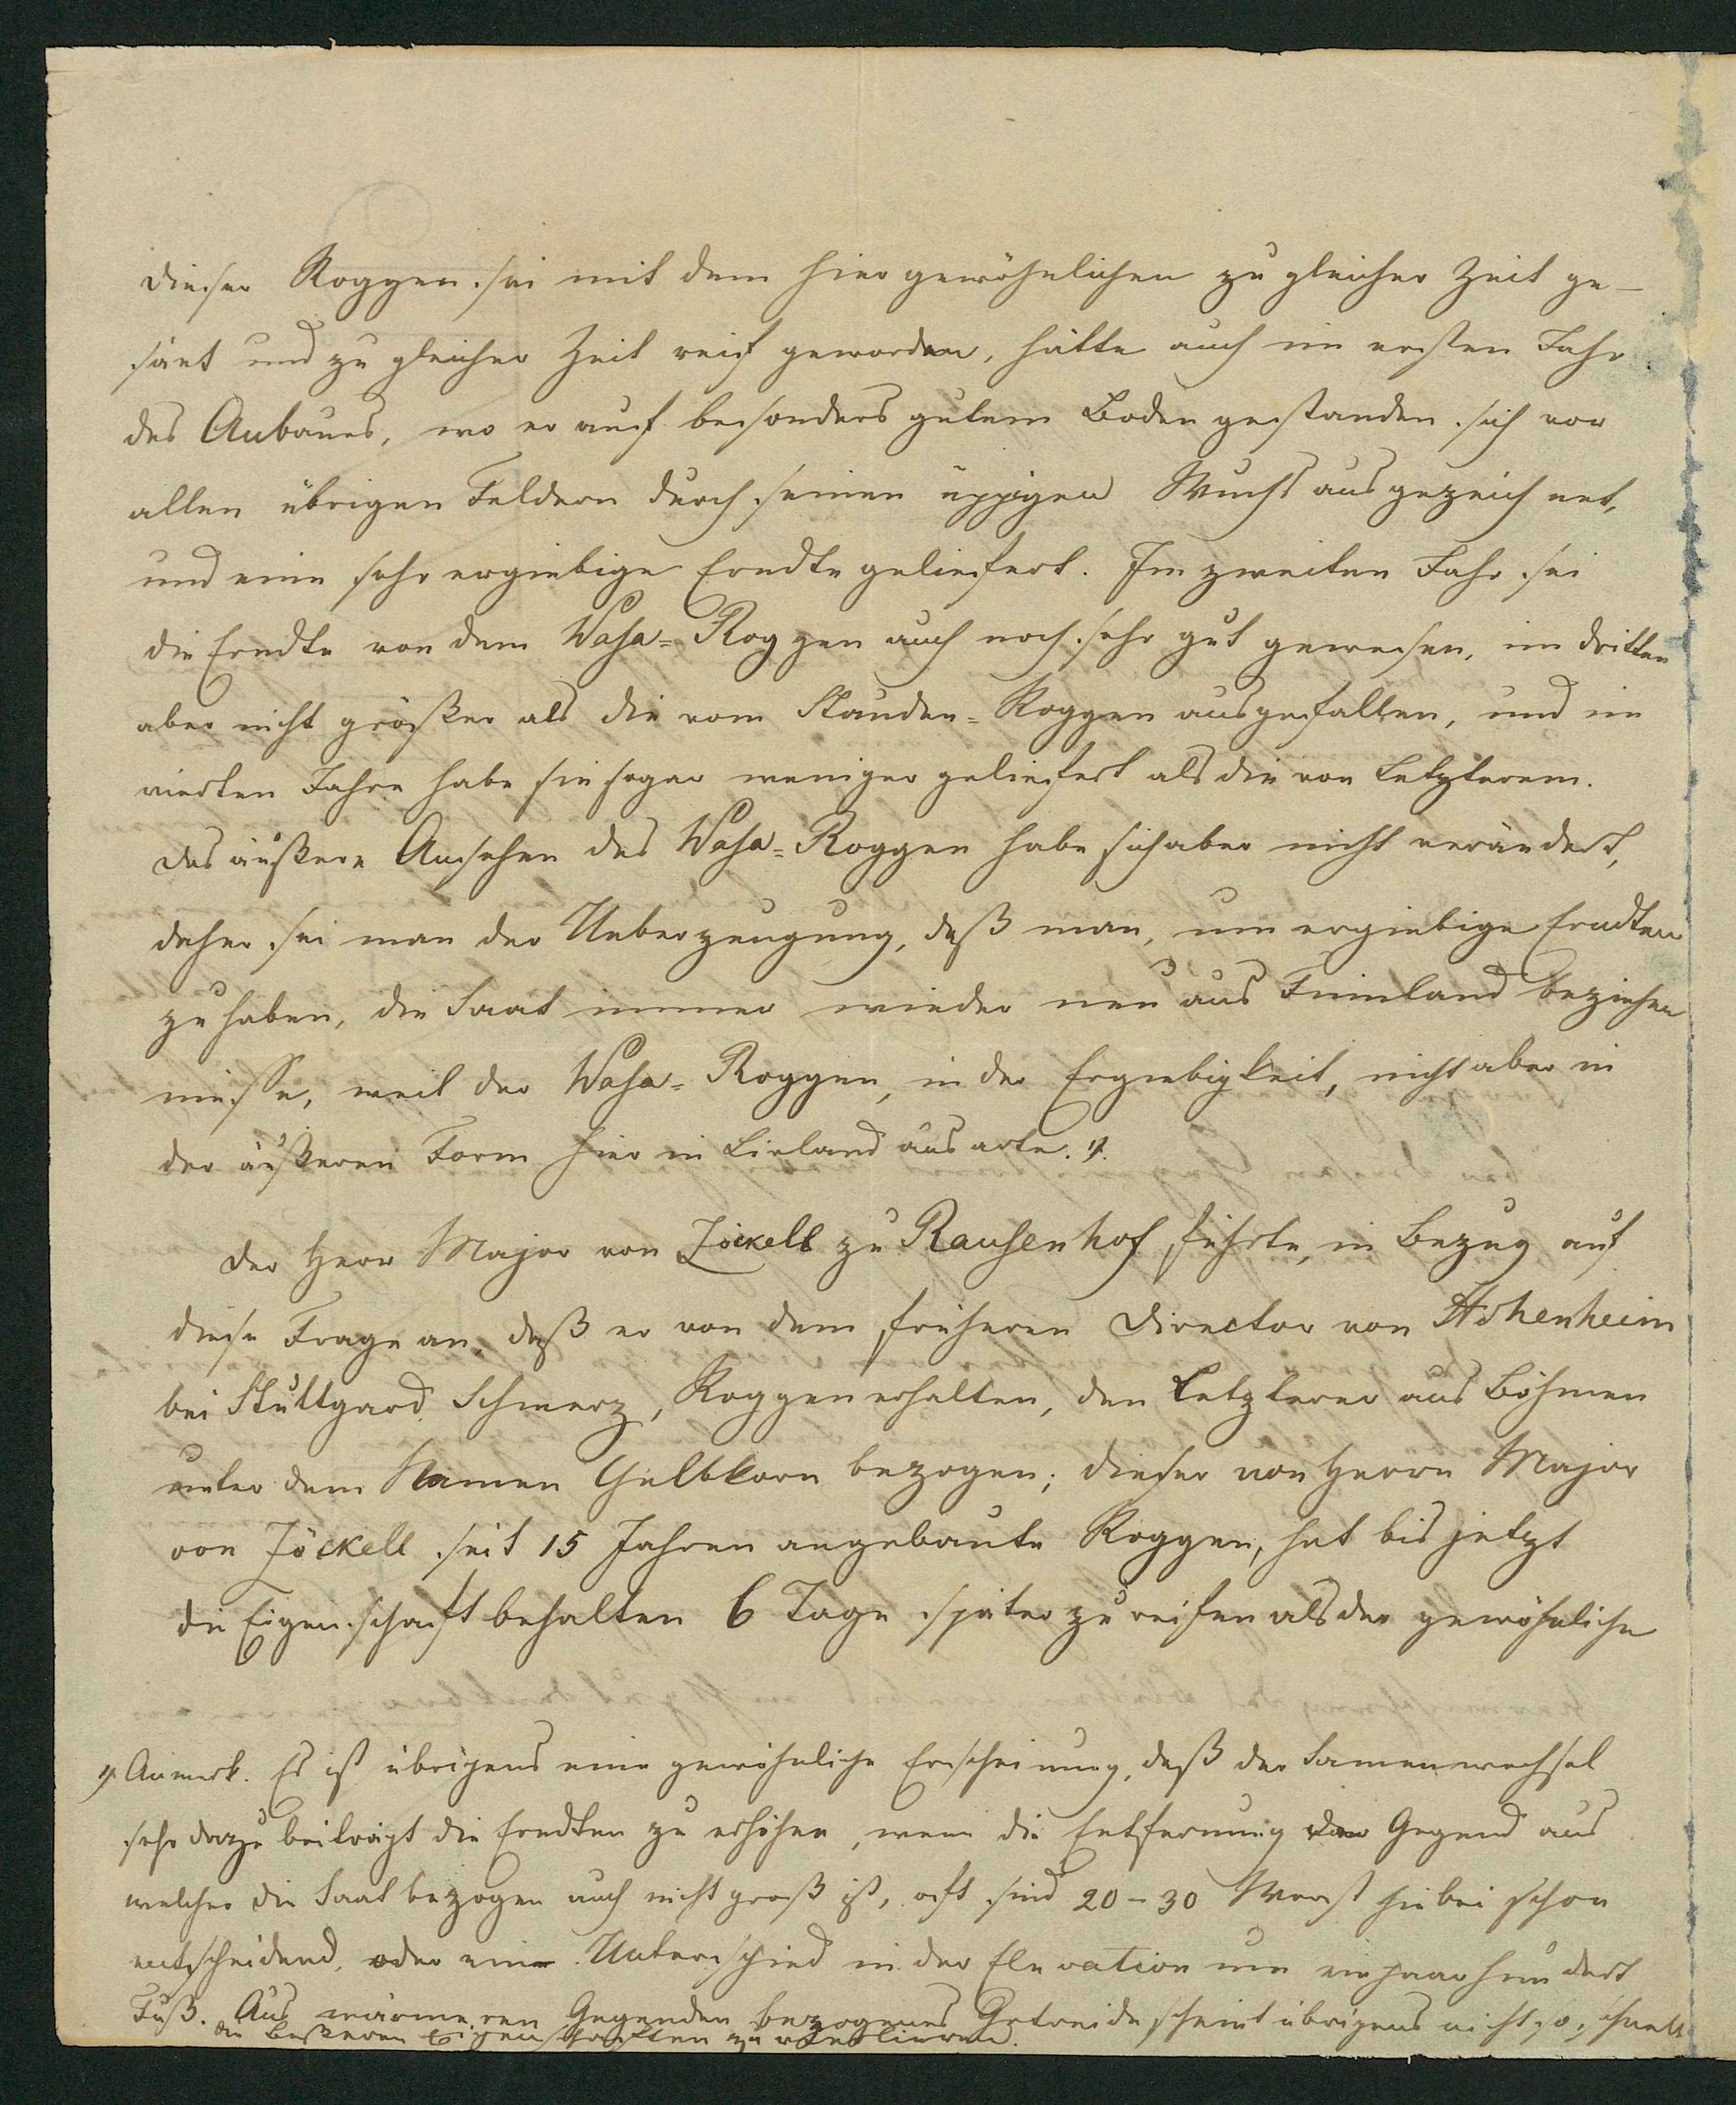 dieser Roggen sei mit dem hier gewöhnlichen zu gleicher Zeit ge-
säet und zu gleicher Zeit reif geworden, hätte auch im ersten Jahr
des Anbaues, wo er auf besonders gutem Boden gestanden sich vor
allen übrigen Feldern durch seinen üppigen Wuchs ausgezeichnet,
und eine sehr ergiebige Erndte geliefert. Im zweiten Jahr sei
die Erndte von dem Wasa-Roggen auch noch sehr gut gewesen, im dritten
aber nicht größer als die vom Stauden-Roggen ausgefallen, und im
vierten Jahre habe sie sogar weniger geliefert als die von Letzterem.
Das äußere Ansehen des Wasa-Roggen habe sich aber nicht verändert,
daher sei man der Ueberzeugung, daß man, um ergiebige Erndten
zu haben, die Saat immer wieder neu aus Finnland beziehen
müsse, weil der Wasa-Roggen, in der Ergiebigkeit, nicht aber in
der äußeren Form hier in Livland ausarte. 1).
Der Herr Major von Jöckell zu Rausenhof führte, in Bezug auf
diese Frage an, daß er von dem früheren Director von Hohenheim
bei Stuttgard, Schwerz, Roggen erhalten, den Letzterer aus Böhmen
unter dem Namen Gelbkorn bezogen; dieser von Herrn Major
von Jöckell seit 15 Jahren angebaute Roggen, hat bis jetzt
die Eigenschaft behalten 6 Tage später zu reifen als der gewöhnliche
1) Anmerk. Es ist übrigens eine gewöhnliche Erscheinung, daß der Samenwechsel
sehr dazu beiträgt die Erndten zu erhöhen, wenn die Entfernung der Gegend aus
welcher die Saat bezogen auch nicht groß ist, oft sind 20-30 Werst hiebei schon
entscheidend, oder ein Unterschied in der Elevation um ein paar hundert
Fuß. Aus wärmeren Gegenden bezogenes Getreide scheint übrigens nicht so schnell
die besseren Eigenschaften zu verlieren.